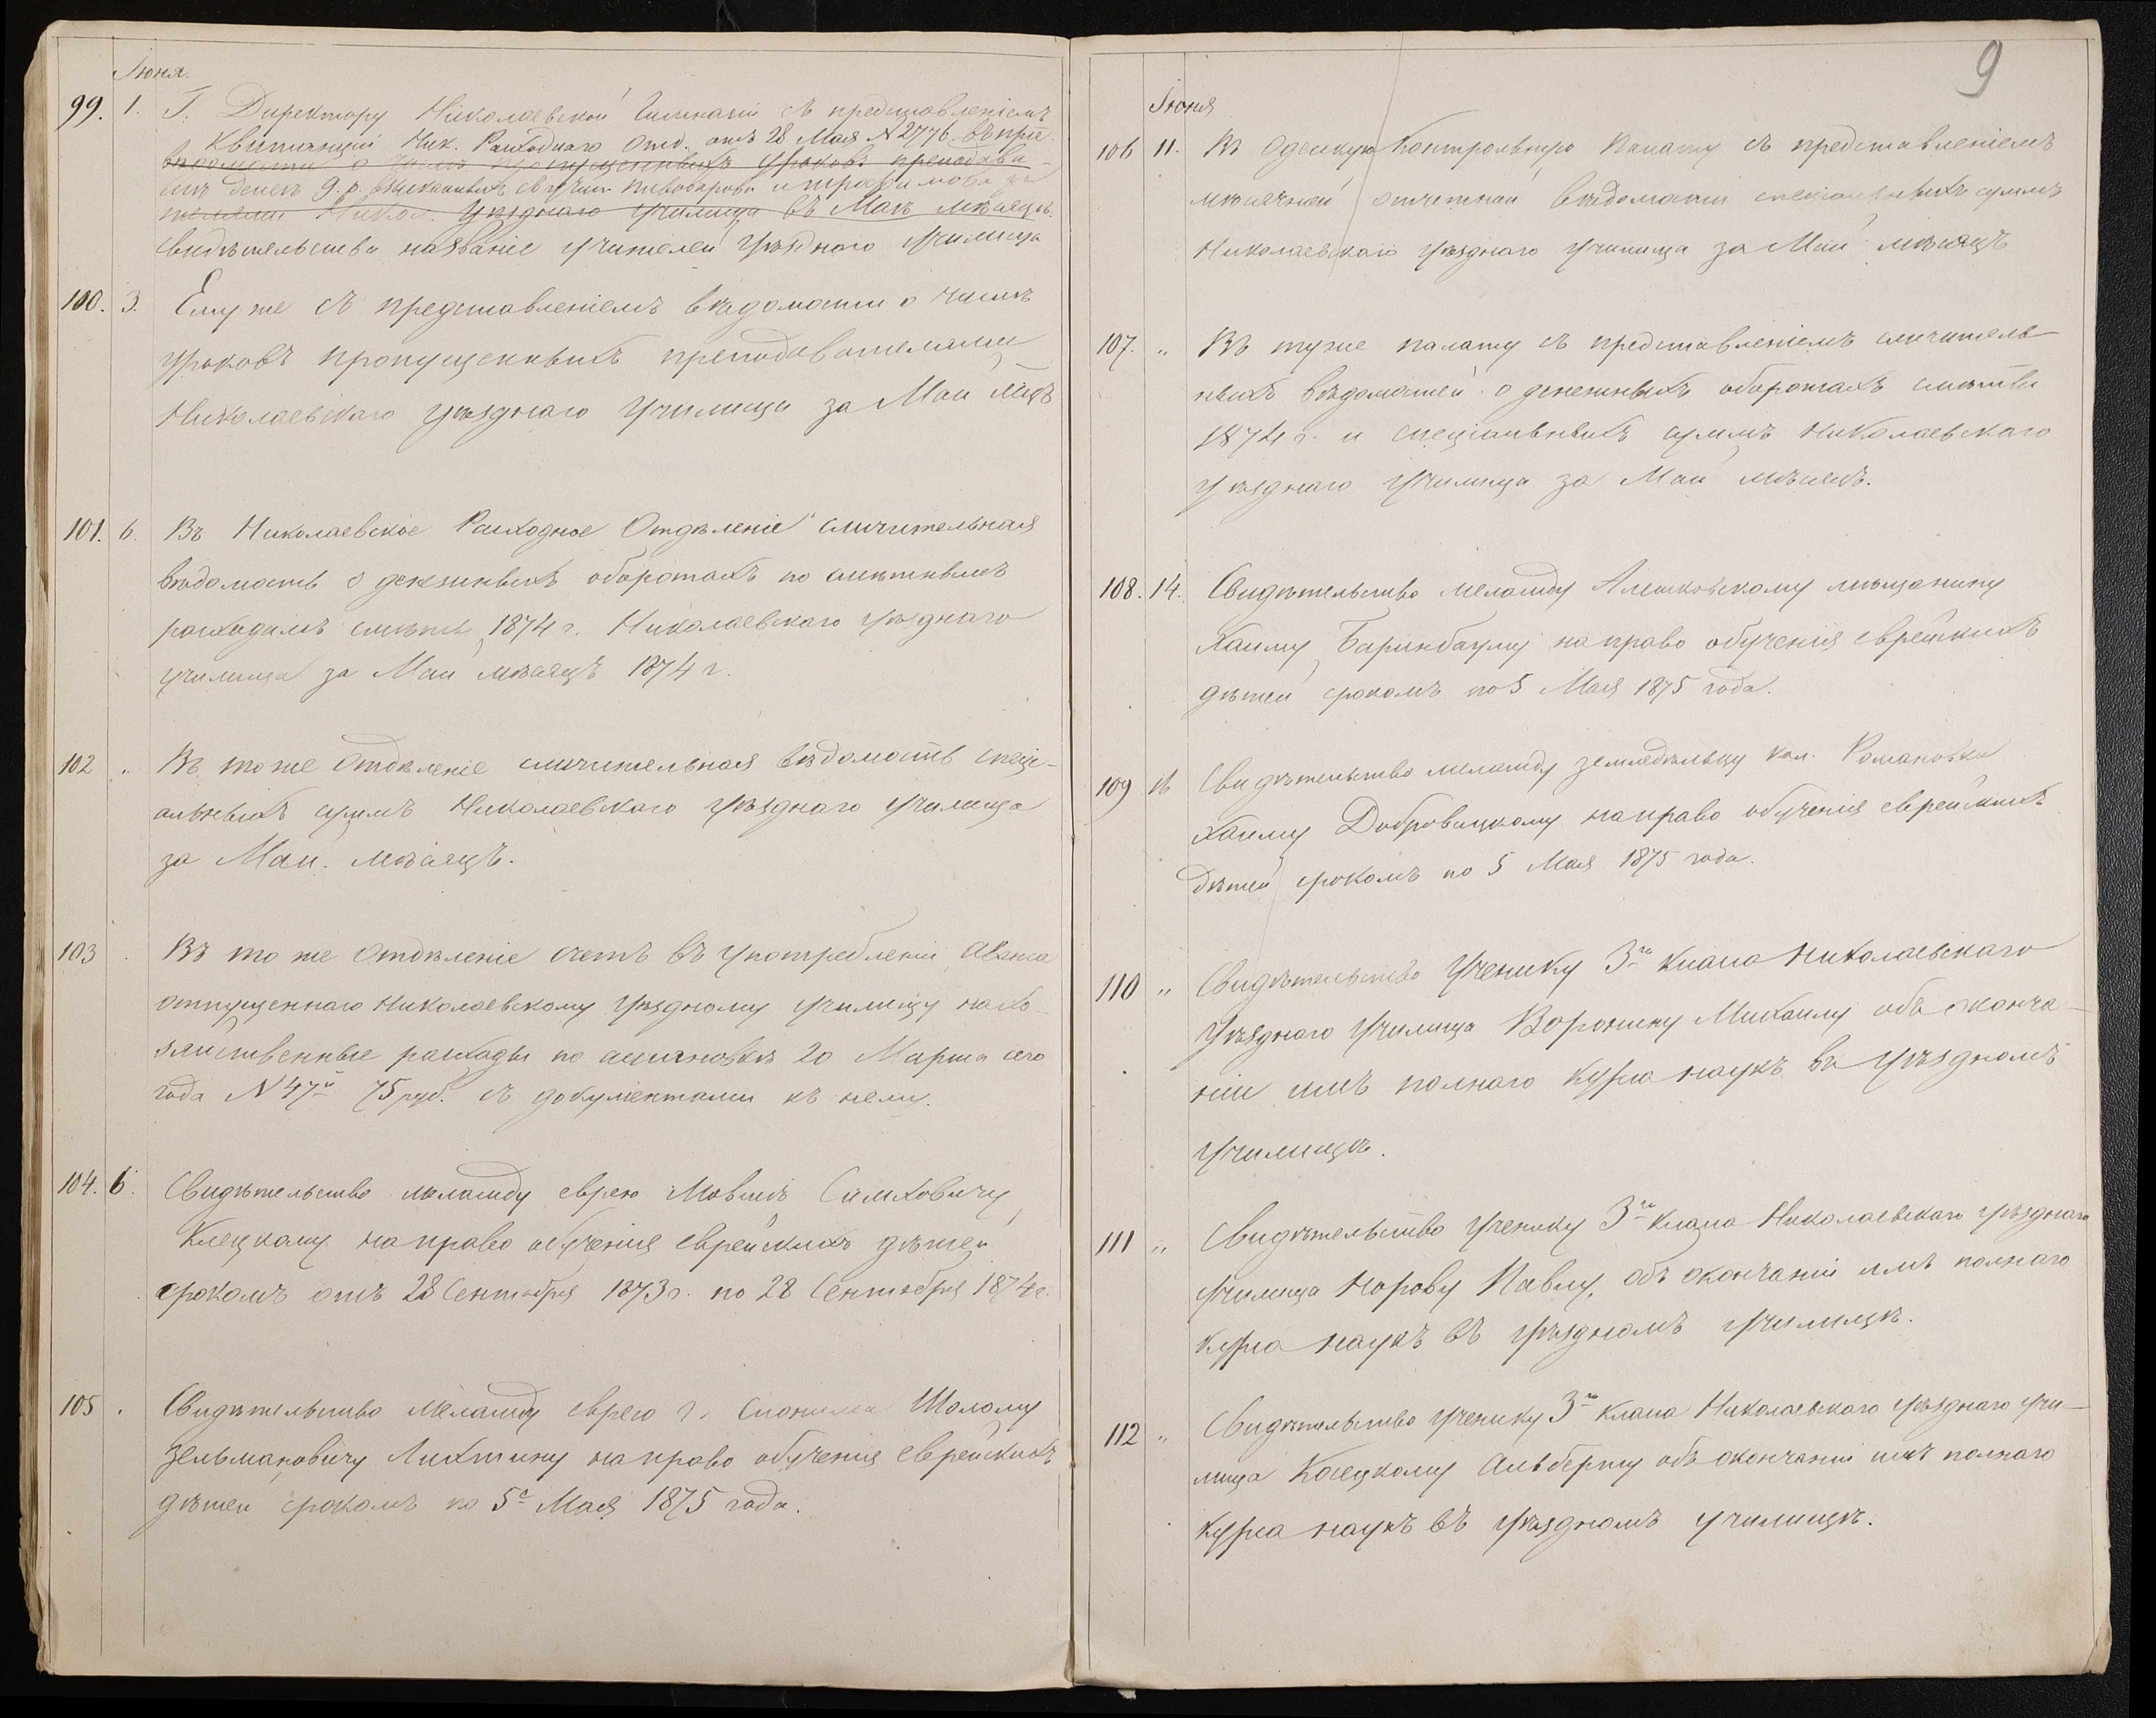 Іюня.
99. 1. Г. Директору Николаевской Гимназіи съ представленіемъ
Квитанціи Ник. Расходнаго Отд. отъ 28 Мая № 2776 въ
вѣдомости о числѣ пропущенныхъ уроковъ преподава-
денегъ 9 р. взысканныхъ съ Пивоварова и Трофимова за
телями Никол. уѣзднаго училища въ Маѣ мѣсяцѣ.
свидѣтельства названіе учителей уѣзднаго училища
100. 3. Ему же съ представленіемъ вѣдомости о числѣ
уроковъ пропущенныхъ преподавателями
Николаевскаго уѣзднаго училища за Май мѣцъ
101. 6. Въ Николаевское Расходное Отдѣленіе сличительная
вѣдомость о денежныхъ оборотахъ по смѣтнымъ
расходамъ смѣты 1874 г. Николаевскаго уѣзднаго
училища за Май мѣсяцъ 1874 г.
102 „ Въ тоже Отдѣленіе сличительная вѣдомость спеці-
альныхъ суммъ Николаевскаго уѣзднаго училища
за Май мѣсяцъ.
103 Въ то же Отдѣленіе счетъ въ употребленіи аванса
отпущеннаго Николаевскому уѣздному училищу на хо-
зяйственные расходы по ассигновкѣ 20 Марта сего
года № 47й 75 руб. съ документами къ нему.
104. 6. Свидѣтельство меламду еврею Мовшѣ Симховичу
Клецкому на право обученія еврейскихъ дѣтей
срокомъ отъ 28 Сентября 1873 г. по 28 Сентября 1874 г.
105 Свидѣтельство Меламду еврею г. Слонима Шолому
Зельмановичу Лихтину на право обученія еврейскихъ
дѣтей срокомъ по 5е Мая 1875 года.
9
Іюня
106 11. Въ Одесскую Контрольную Палату съ представленіемъ
мѣсячной отчетной вѣдомости спеціальныхъ суммъ
Николаевскаго уѣзднаго училища за Май мѣсяцъ
107. „ Въ туже палату съ представленіемъ сличитель-
ныхъ вѣдомостей о денежныхъ оборотахъ смѣты
1874 г. и спеціальныхъ суммъ Николаевскаго
уѣзднаго училища за Май мѣсяцъ.
108. 14. Свидѣтельство меламду Алешковскому мѣщанину
Хаиму Баринбауму на право обученія еврейскихъ
дѣтей срокомъ по 5 Мая 1875 года.
109 Свидѣтельство меламду земледѣльцу кол. Романовка
Хаиму Добровицкому на право обученія еврейскихъ
дѣтей срокомъ по 5 Мая 1875 года.
110 „ Свидѣтельство Ученику 3го класса Николаевскаго
Уѣзднаго Училища Воронину Михаилу объ оконча-
ніи имъ полнаго курса наукъ въ Уѣздномъ
Училищѣ.
111 „ Свидѣтельство ученику 3го класса Николаевскаго уѣзднаго
училища Норову Павлу, объ окончаніи имъ полнаго
курса наукъ въ уѣздномъ училищѣ.
112 „ Свидѣтельство ученику 3го класса Николаевскаго уѣзднаго учи-
лища Косецкому Альберту объ окончаніи имъ полнаго
курса наукъ въ уѣздномъ училищѣ.